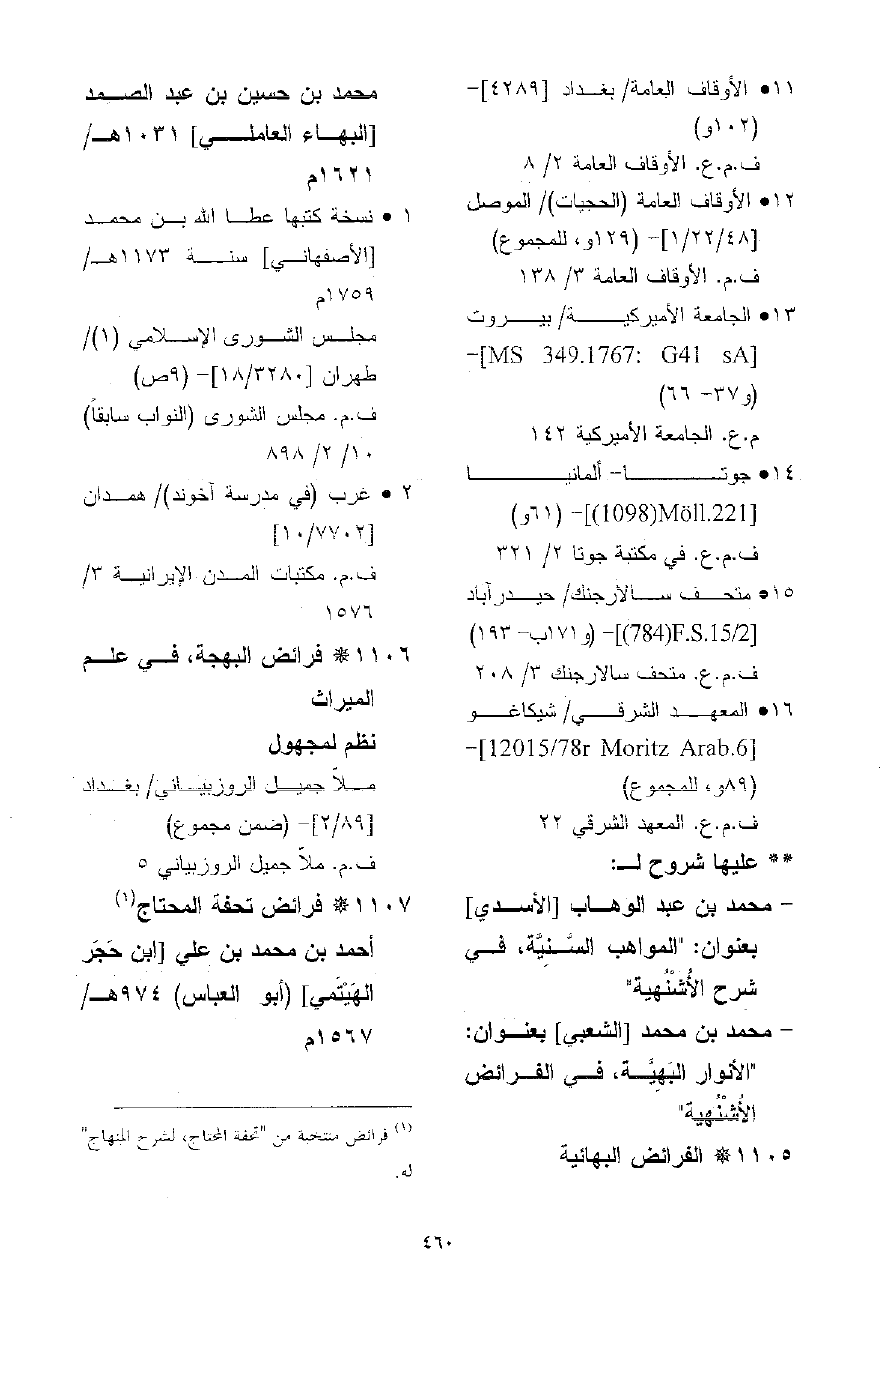 ١١• الأوقاف العامة/ بغداد [٤٢٨٩]-
(١٠٢و)
ف.م.ع. الأوقاف العامة ٢/ ٨
١٢• الأوقاف العامة (الحجيات)/ الموصل
[١/٢٢/٤٨]- (١٢٩و، للمجموع)
ف.م. الأوقاف العامة ٣/ ١٣٨
١٣• الجامعة الأميركية/ بيروت
[MS 349.1767: G41 sA]-
(و٣٧- ٦٦)
م.ع. الجامعة الأميركية ١٤٢
١٤• جوتا- ألمانيا
[Möll.221(1098)]- (٦١و)
ف.م.ع. في مكتبة جوتا ٢/ ٣٢١
١٥• متحف سالارجنك/ حيدرآباد
[F.S.15/2(784)]- (و١٧١ب- ١٩٣)
ف.م.ع. متحف سالارجنك ٣/ ٢٠٨
١٦• المعهد الشرقي/ شيكاغو
[12015/78r Moritz Arab.6]-
(٨٩و، للمجموع)
ف.م.ع. المعهد الشرقي ٢٢
** عليها شروح لـ:
- محمد بن عبد الوهاب [الأسدي]
بعنوان: "المواهب السَّنِيَّة، في
شرح الأُشْنُهية"
- محمد بن محمد [الشعبي] بعنوان:
"الأنوار البَهِيَّة، في الفرائض
الأُشْنُهية"
١١٠٥* الفرائض البهائية
محمد بن حسين بن عبد الصمد
[البهاء العاملي] ١٠٣١هـ/
١٦٢١م
١ • نسخة كتبها عطا الله بن محمد
[الأصفهاني] سنة ١١٧٣هـ/
١٧٥٩م
مجلس الشورى الإسلامي (١)/
طهران [١٨/٣٢٨٠]- (٩ص)
ف.م. مجلس الشورى (النواب سابقاً)
١٠/ ٢/ ٨٩٨
٢ • غرب (في مدرسة آخوند)/ همدان
[١٠/٧٧٠٢]
ف.م. مكتبات المدن الإيرانية ٣/
١٥٧٦
١١٠٦* فرائض البهجة، في علم
الميراث
نظم لمجهول
ملاّ جميل الروزبياني/ بغداد
[٢/٨٩]- (ضمن مجموع)
ف.م. ملاّ جميل الروزبياني ٥
١١٠٧* فرائض تحفة المحتاج(١)
أحمد بن محمد بن علي [ابن حَجَر
الهَيْتَمي] (أبو العباس) ٩٧٤هـ/
١٥٦٧م
(١) فرائض منتخبة من "تحفة المحتاج، لشرح المنهاج"
له.
٤٦٠